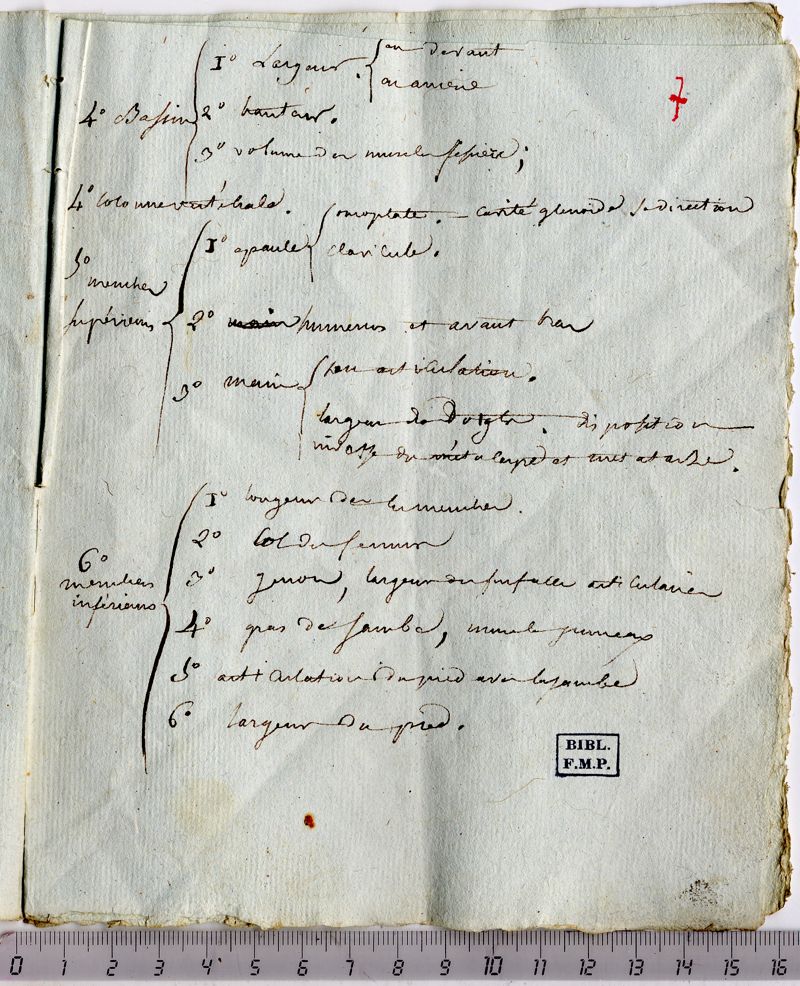 1° Largeur. { en devant
en arriere
7
4° Bassin { 2° hauteur.
3° volume des muscles fessiers;
4° Colonne vertébrale.
omoplate. — cavité glénoïde sa direction
1° epaule { clavicule.
5° membres
supérieurs { 2° main humerus et avant bras
3° main { son articulation.
largeur des doigts. disposition
du métacarpe et metatarse.
1° longueur des membres.
2° Col du femur
6°
membres
inférieurs { 3° genou, largeur des surfaces articulaires
4° gras de jambe, muscles jumeaux
5° articulation du pied avec la jambe
6° largeur du pied.
BIBL.
F.M.P.
0 1 2 3 4 5 6 7 8 9 10 11 12 13 14 15 16